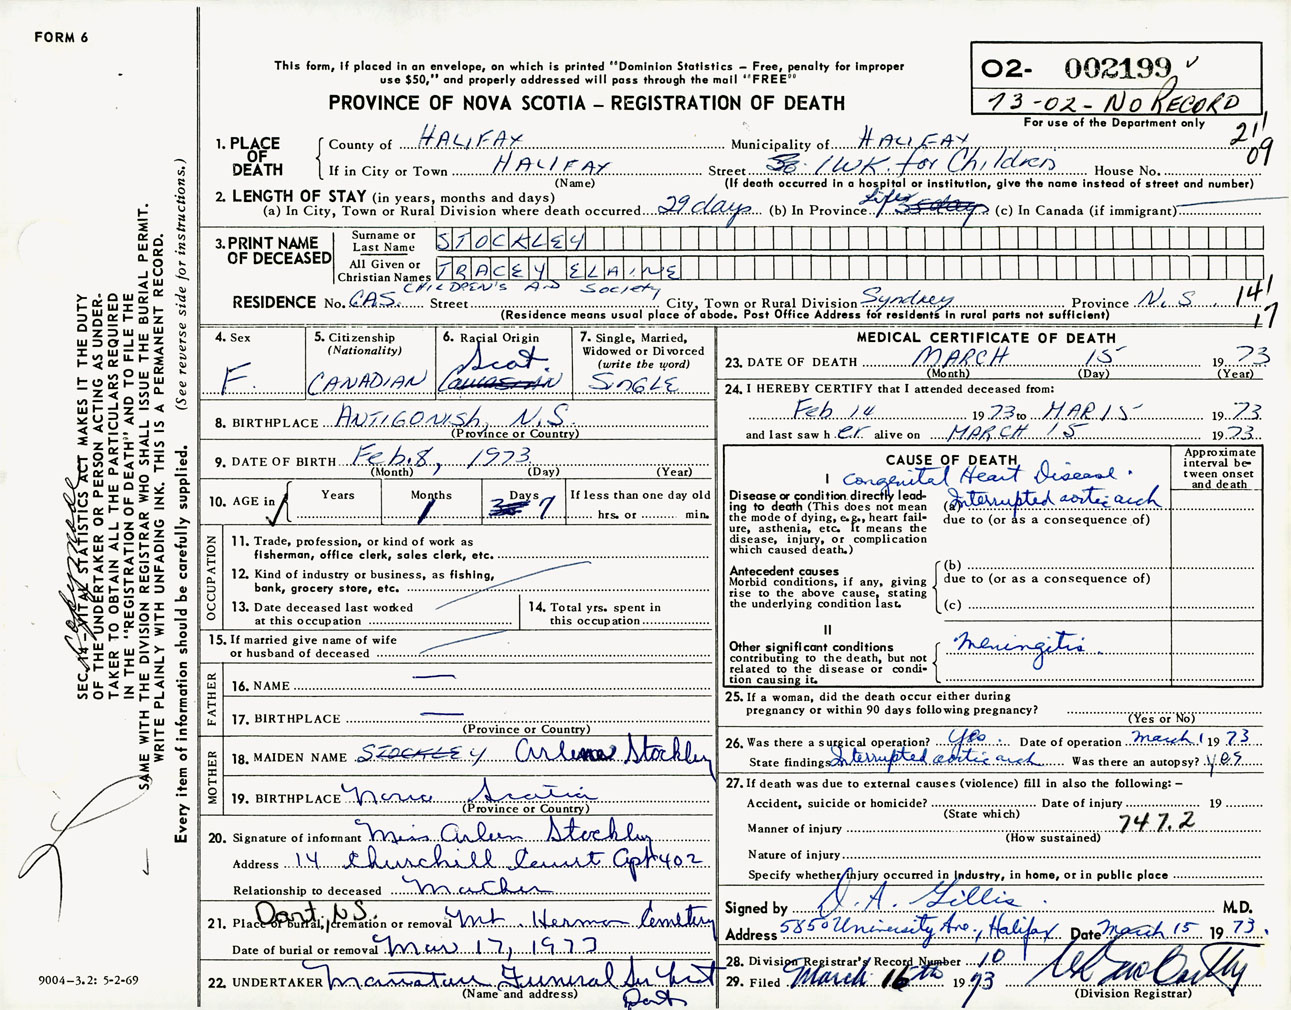 FORM 6
This form, if placed in an envelope, on which is printed "Dominion Statistics – Free, penalty for improper
use $50," and properly addressed will pass through the mail "FREE"
PROVINCE OF NOVA SCOTIA – REGISTRATION OF DEATH
O2- 002199
73-02-NO RECORD
For use of the Department only
211
09
1. PLACE OF DEATH
County of HALIFAX Municipality of HALIFAX
If in City or Town HALIFAX Street IWK. for Children House No.
(Name) (If death occurred in a hospital or institution, give the name instead of street and number)
2. LENGTH OF STAY (in years, months and days)
(a) In City, Town or Rural Division where death occurred 29 days (b) In Province Life 35 days (c) In Canada (if immigrant)
3. PRINT NAME OF DECEASED
Surname or Last Name STOCKLEY
All Given or Christian Names TRACEY ELAINE
CHILDREN'S AID Society
RESIDENCE No. CAS. Street City, Town or Rural Division Syndney Province N.S. 141
(Residence means usual place of abode. Post Office Address for residents in rural parts not sufficient) 17
4. Sex F.
5. Citizenship (Nationality) CANADIAN
6. Racial Origin Scot. CAUCASIAN
7. Single, Married, Widowed or Divorced (write the word) SINGLE
8. BIRTHPLACE ANTIGONISH, N.S.
(Province or Country)
9. DATE OF BIRTH Feb. 8, 1973
(Month) (Day) (Year)
10. AGE in Years Months 1 Days 35 7 If less than one day old
hrs. or min.
OCCUPATION
11. Trade, profession, or kind of work as
fisherman, office clerk, sales clerk, etc.
12. Kind of industry or business, as fishing,
bank, grocery store, etc.
13. Date deceased last worked
at this occupation
14. Total yrs. spent in
this occupation
15. If married give name of wife
or husband of deceased
FATHER
16. NAME —
17. BIRTHPLACE —
(Province or Country)
MOTHER
18. MAIDEN NAME STOCKLEY Arlene Stockley
19. BIRTHPLACE Nova Scotia
(Province or Country)
20. Signature of informant Miss Arleen Stockley
Address 14 Churchill Court Apt 402
Relationship to deceased Mother
Dart, N.S.
21. Place of burial, cremation or removal Mt. Hermon Cemetery
Date of burial or removal Mar 17, 1973
22. UNDERTAKER Funeral
(Name and address)
Dart
MEDICAL CERTIFICATE OF DEATH
23. DATE OF DEATH MARCH 15 1973
(Month) (Day) (Year)
24. I HEREBY CERTIFY that I attended deceased from:
Feb 14 1973 to MAR 15 1973
and last saw her alive on MARCH 15 1973
CAUSE OF DEATH
Approximate interval between onset and death
I Congenital Heart Disease.
Disease or condition directly leading to death (This does not mean the mode of dying, e.g., heart failure, asthenia, etc. It means the disease, injury, or complication which caused death.)
(a) Interrupted aortic arch
due to (or as a consequence of)
Antecedent causes
Morbid conditions, if any, giving rise to the above cause, stating the underlying condition last.
(b)
due to (or as a consequence of)
(c)
II
Other significant conditions
contributing to the death, but not related to the disease or condition causing it.
Meningitis.
25. If a woman, did the death occur either during
pregnancy or within 90 days following pregnancy?
(Yes or No)
26. Was there a surgical operation? Yes. Date of operation March 1 1973
State findings Interrupted aortic arch Was there an autopsy? yes
27. If death was due to external causes (violence) fill in also the following: –
Accident, suicide or homicide? Date of injury 19
(State which)
Manner of injury 747.2
(How sustained)
Nature of injury
Specify whether injury occurred in industry, in home, or in public place
Signed by D. A. Gillis. M.D.
Address 5850 University Ave., Halifax Date March 15 1973.
28. Division Registrar's Record Number 10
29. Filed March 16th 1973
(Division Registrar)
SEC. 14 – VITAL STATISTICS ACT MAKES IT THE DUTY
OF THE UNDERTAKER OR PERSON ACTING AS UNDER-
TAKER TO OBTAIN ALL THE PARTICULARS REQUIRED
IN THE "REGISTRATION OF DEATH" AND TO FILE THE
SAME WITH THE DIVISION REGISTRAR WHO SHALL ISSUE THE BURIAL PERMIT.
WRITE PLAINLY WITH UNFADING INK. THIS IS A PERMANENT RECORD.
Every item of information should be carefully supplied. (See reverse side for instructions.)
9004–3.2: 5-2-69